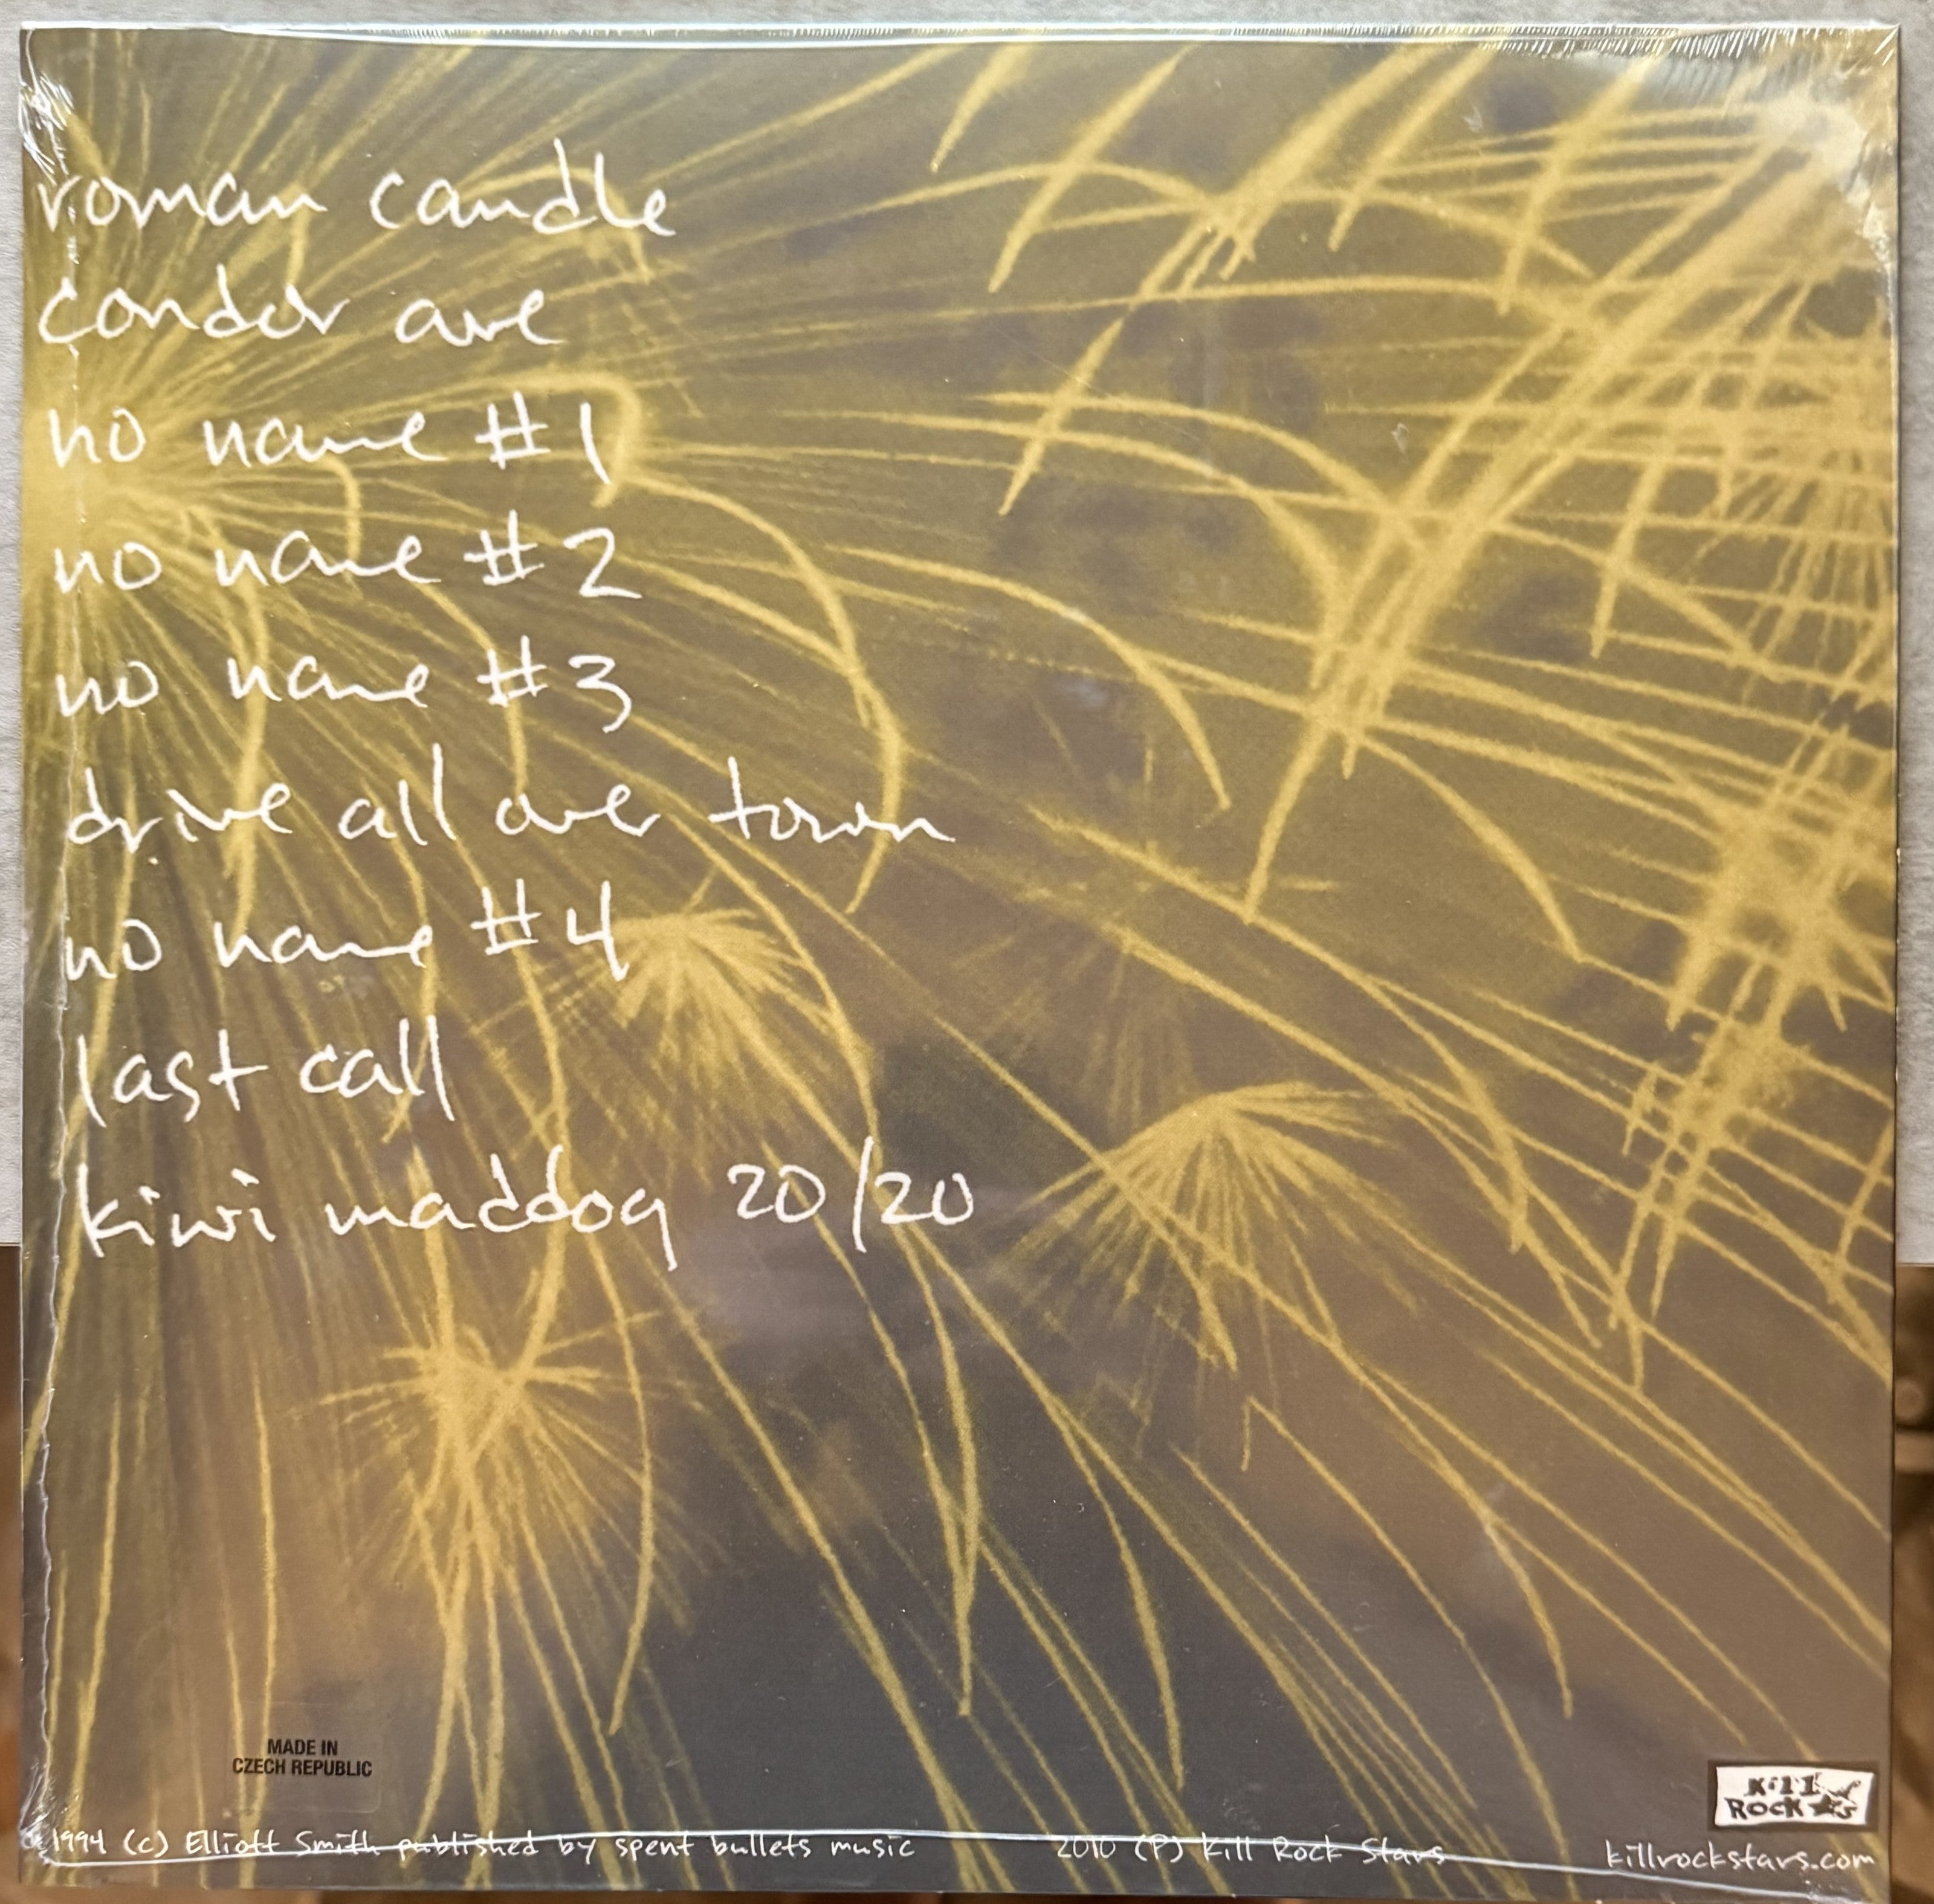 roman candle
condor ave
no name #1
no name #2
no name #3
drive all over town
no name #4
last call
kiwi maddog 20/20
MADE IN
CZECH REPUBLIC
Kill
ROCK ★s
1994 (c) Elliott Smith published by spent bullets music
2010 (P) Kill Rock Stars
killrockstars.com